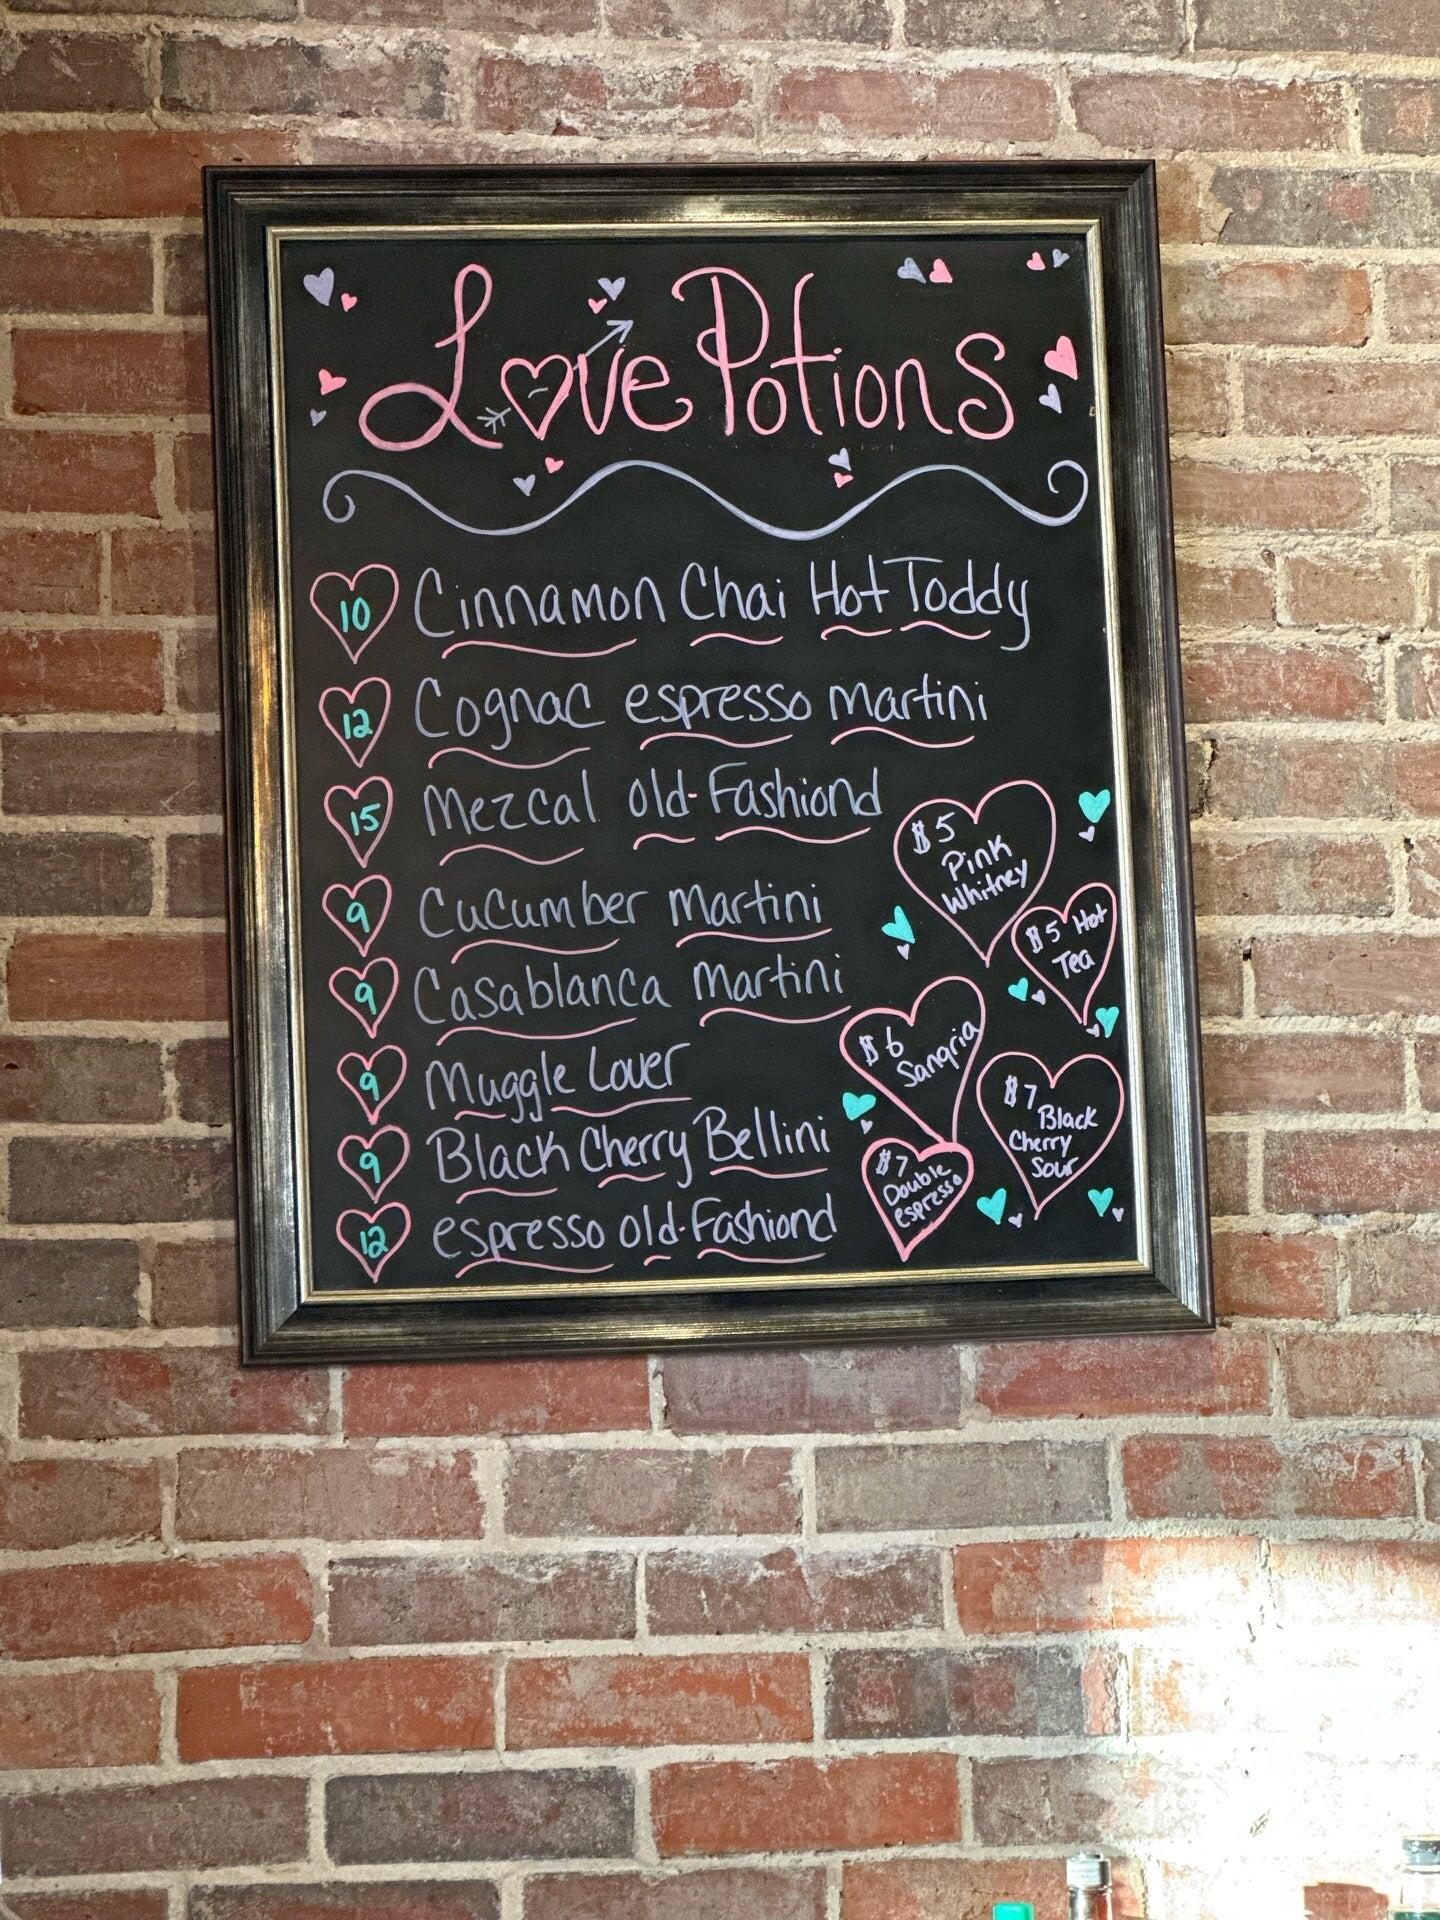 Love Potions
10 Cinnamon Chai Hot Toddy
12 Cognac espresso martini
15 Mezcal old-Fashiond
9 Cucumber Martini
9 Casablanca Martini
9 Muggle Lover
9 Black Cherry Bellini
12 espresso old-Fashiond
$5
Pink
Whitney
$5 Hot
Tea
$6
Sangria
$7
Black
Cherry
Sour
$7
Double
espresso